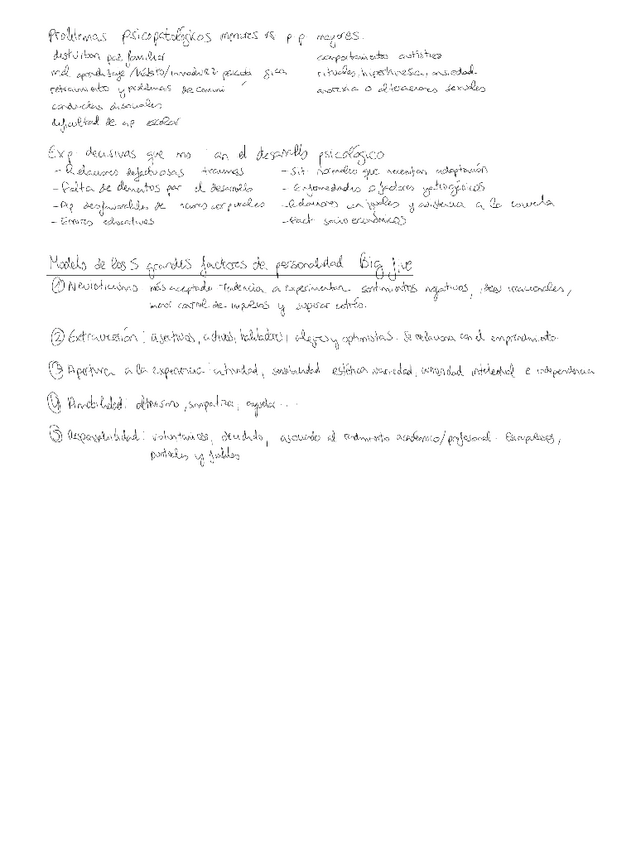 Problemas psicopatológicos menores vs p p mayores.
familiar
comportamientos autistas
mal aprendizaje
rituales, hiperkinesia, ansiedad.
retraimiento y problemas de comuni
anorexia o alteraciones sexuales
conductas
dificultad de ap escolar
Exp decisivas que en el desarrollo psicológico
- Relaciones defectuosas traumas
- Sit. que necesitan adaptación
- Falta de elementos por el desarrollo
- Enfermedades o factores
- Ap desfavorables de corporales
- Relaciones con iguales y asistencia a la
- Errores educativos
- Fact. socioeconómicos
Modelo de los 5 grandes factores de personalidad Big five
① Neuroticismo más aceptada - tendencia a experimentar sentimientos negativos, ideas irracionales,
control de impulsos y estrés.
② Extraversión: asertivos, activos, habladores, alegres y optimistas. Se relaciona con el emprendimiento.
③ Apertura a la experiencia: sensibilidad estética variedad, curiosidad intelectual e independencia
④ Amabilidad: altruismo, simpatiza, ayudar...
⑤ Responsabilidad: decidido, asociado al rendimiento académico/profesional. Escrupulosos,
puntuales y fiables